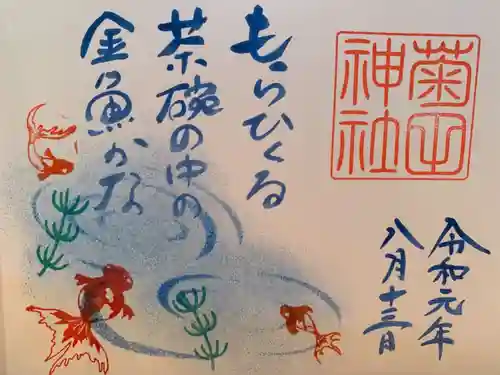 もらひくる
茶碗の中の
金魚かな
菊田
神社
令和元年
八月十三日